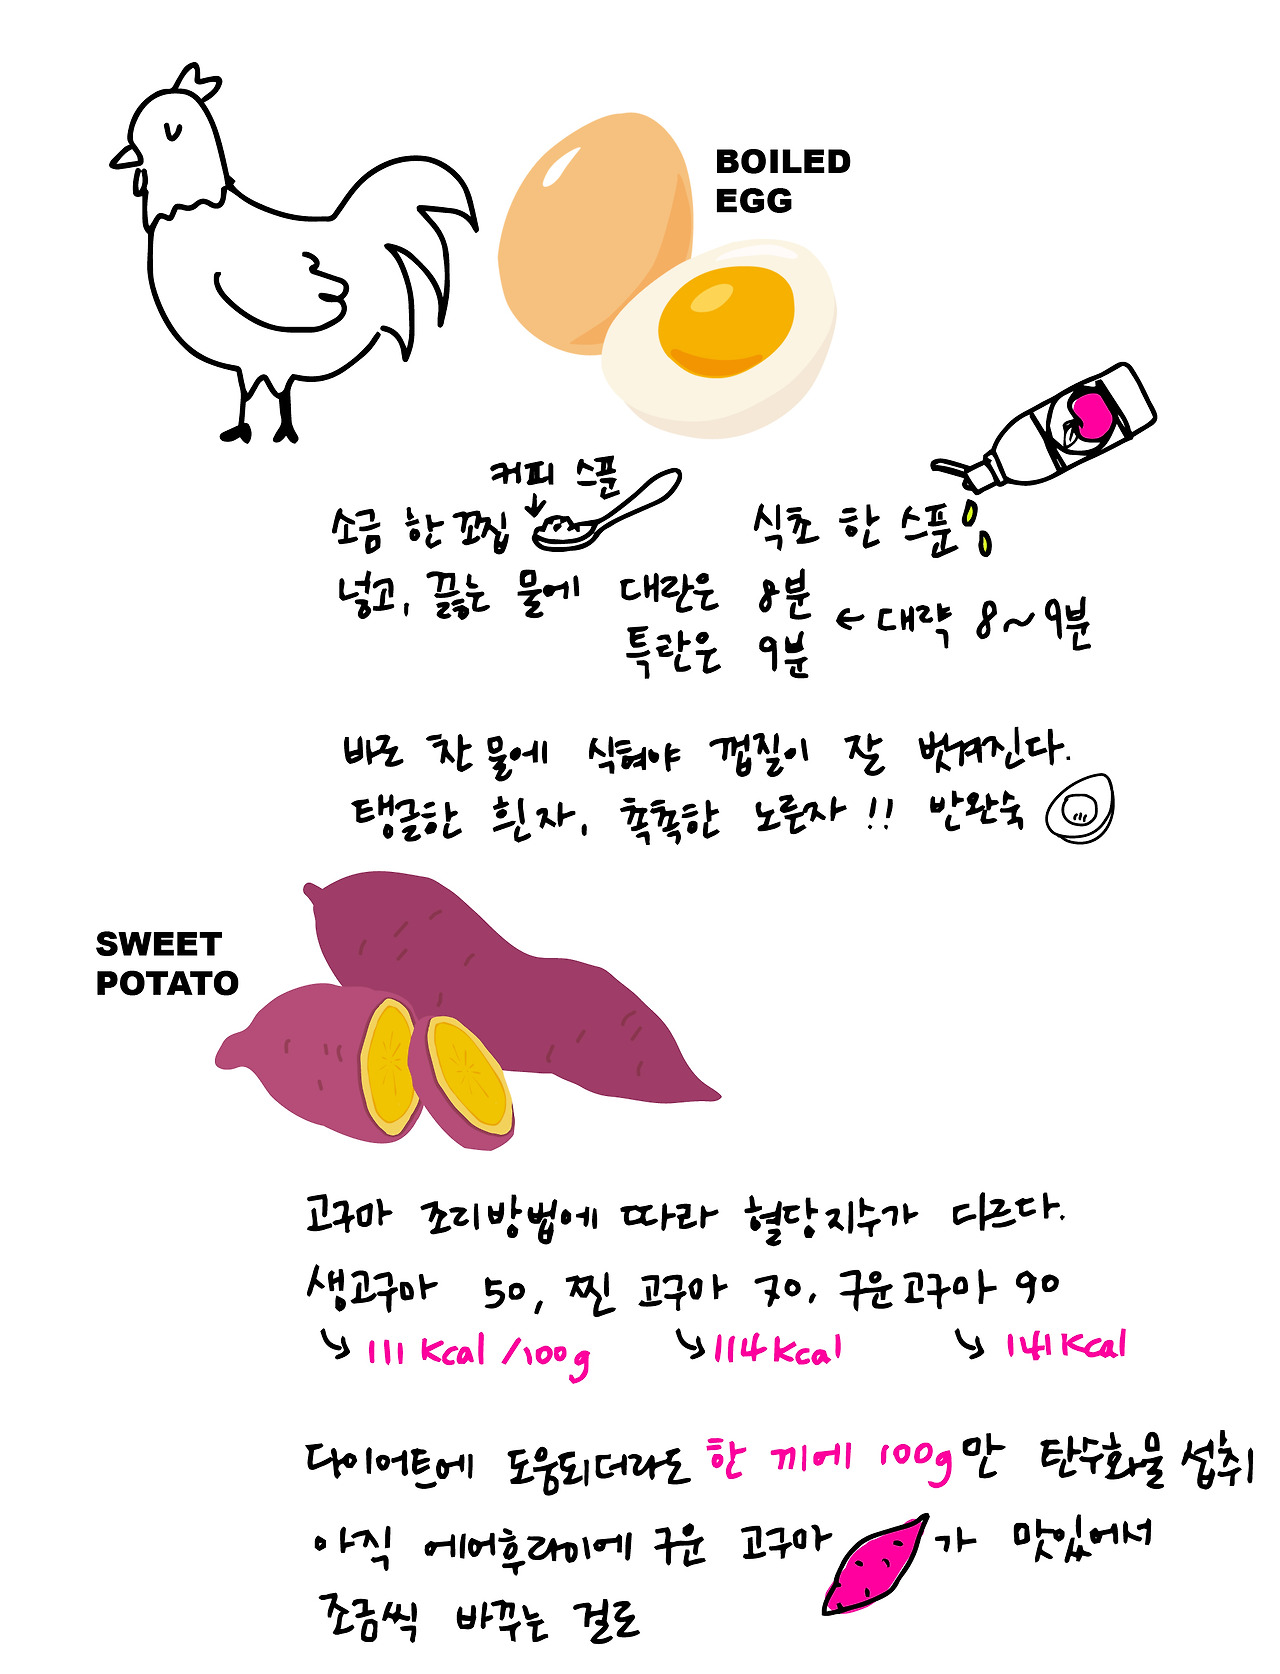 BOILED
EGG
커피 스푼
소금 한 꼬집 식초 한 스푼
넣고, 끓는 물에 대란은 8분
특란은 9분 ← 대략 8~9분
바로 찬물에 식혀야 껍질이 잘 벗겨진다.
탱글한 흰자, 촉촉한 노른자!! 반완숙
SWEET
POTATO
고구마 조리방법에 따라 혈당지수가 다르다.
생고구마 50, 찐 고구마 70, 구운고구마 90
111 Kcal /100g 114 Kcal 141 Kcal
다이어트에 도움되더라도 한 끼에 100g만 탄수화물 섭취
아직 에어후라이에 구운 고구마가 맛있어서
조금씩 바꾸는 걸로